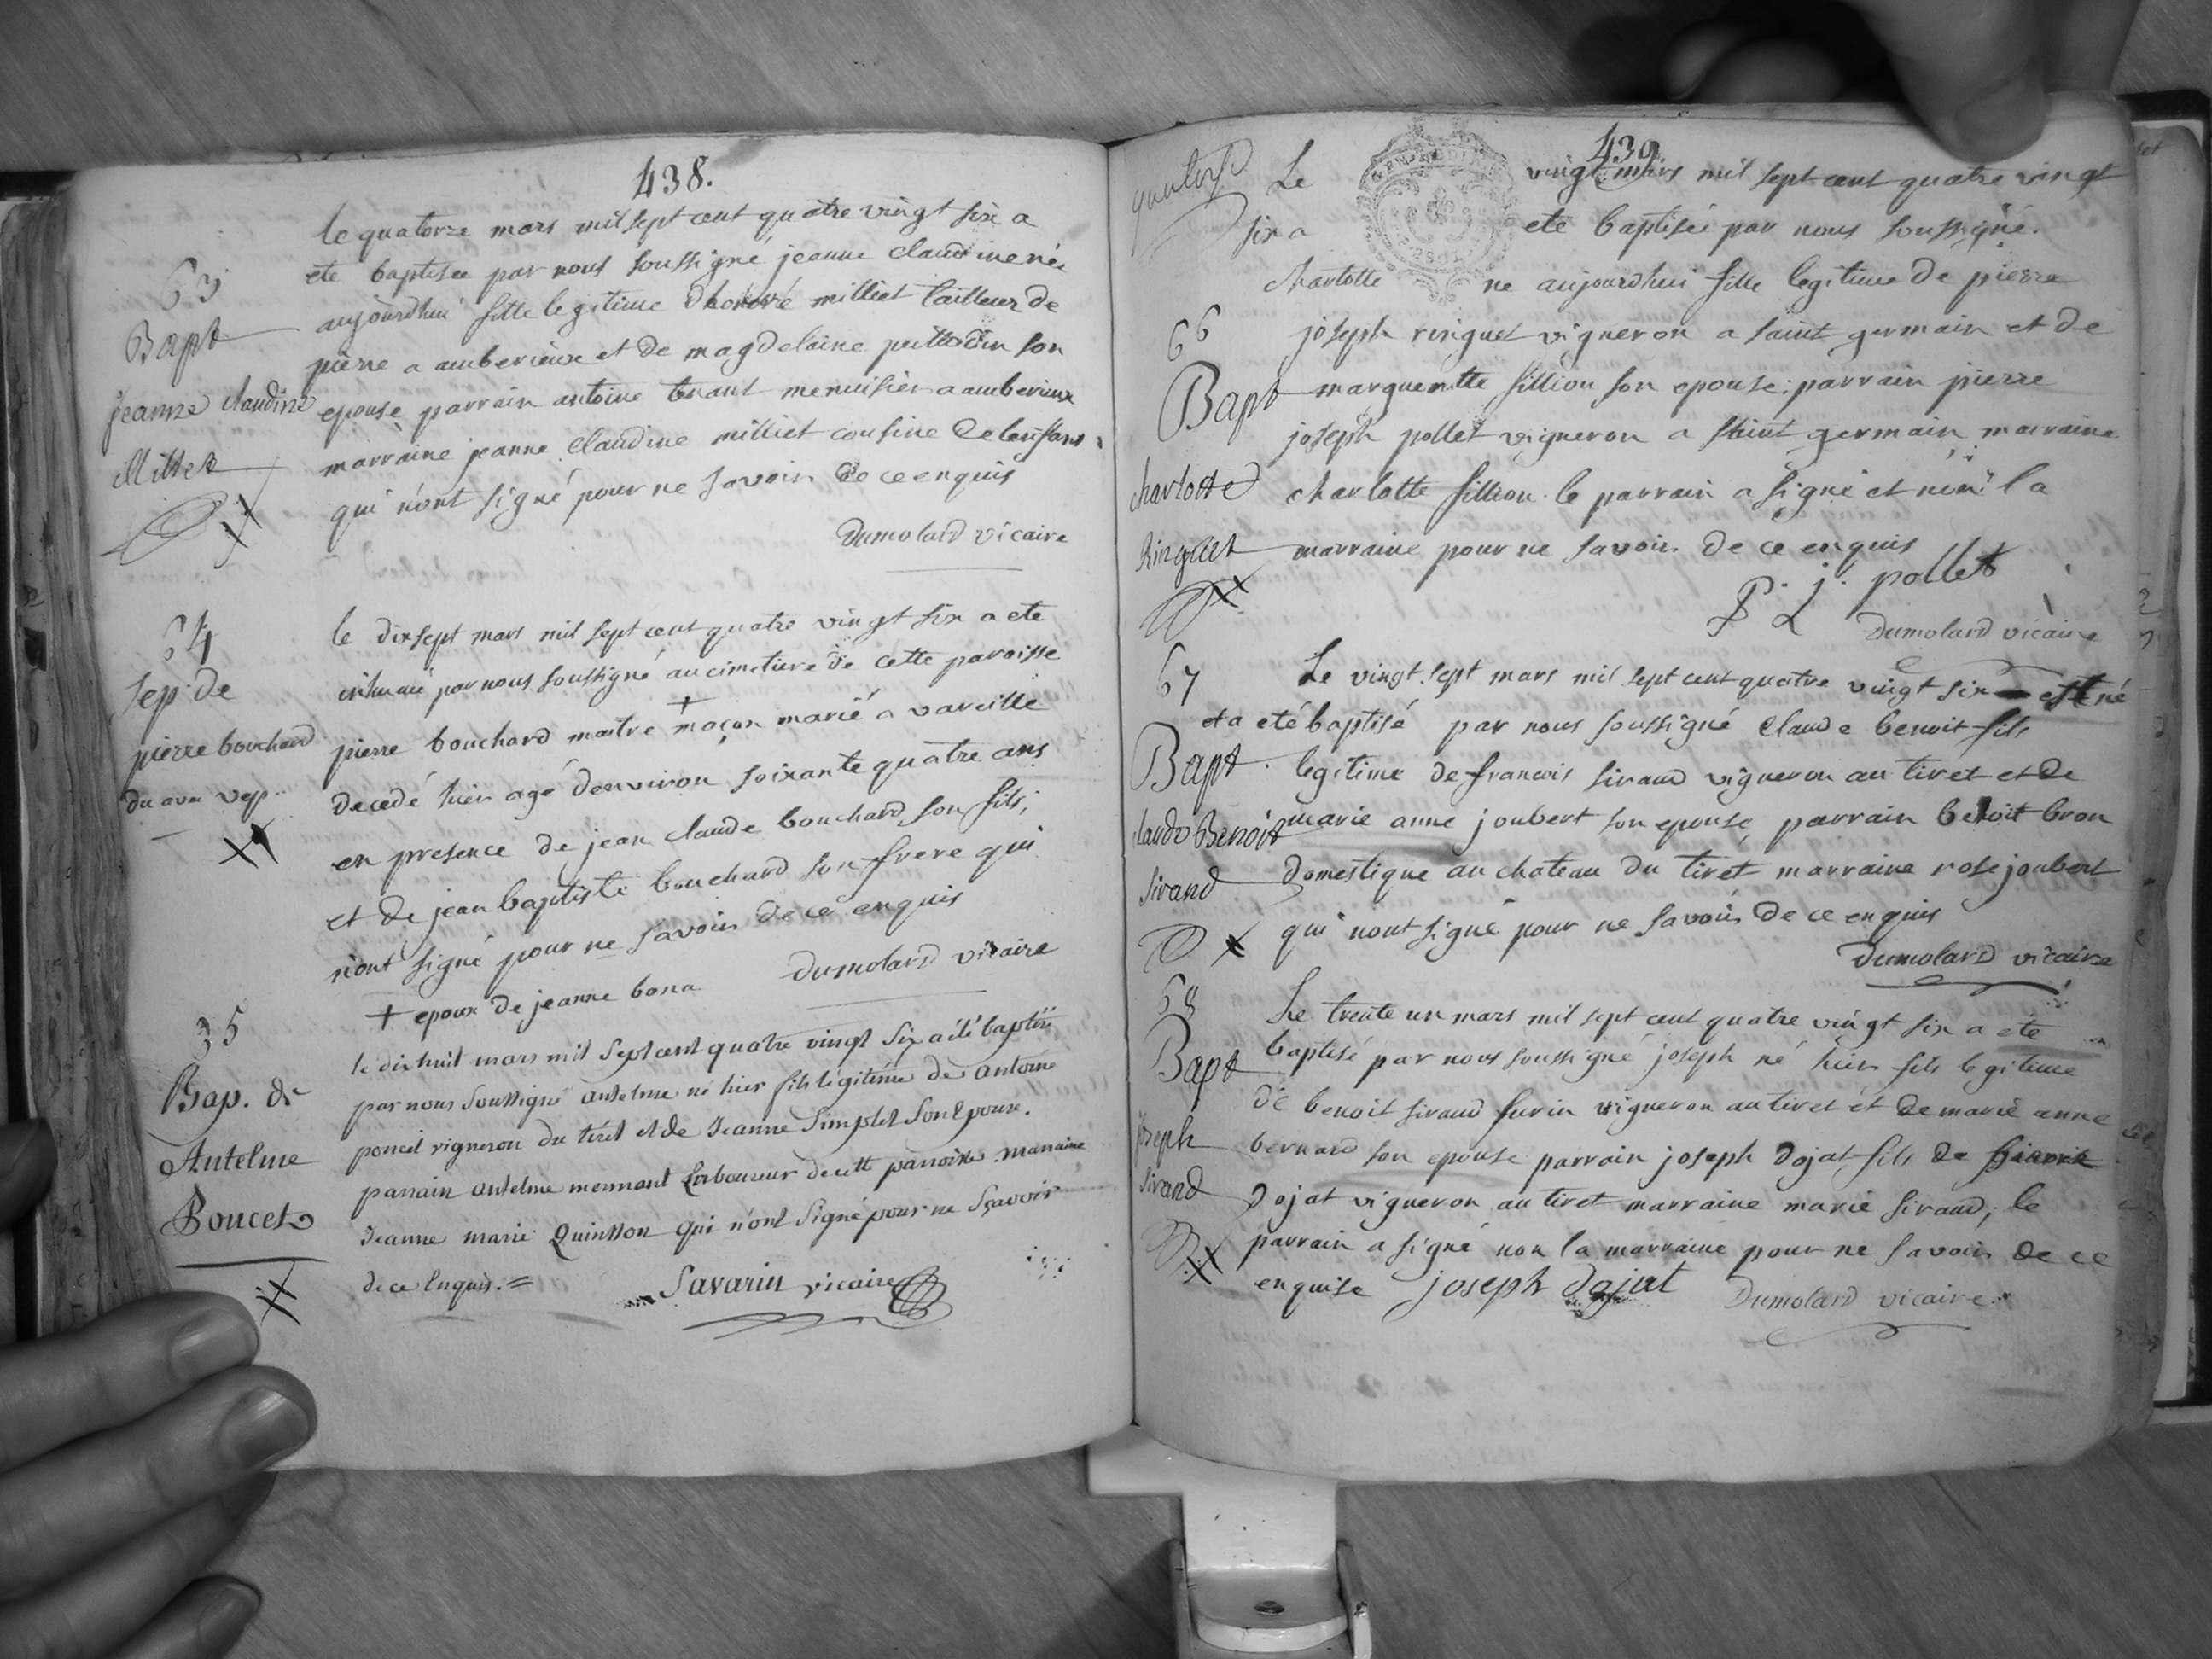 438.
63
Bapt
jeanne claudine
Milliet
le quatorze mars mil sept cent quatre vingt six a
ete baptisee par nous soussigné jeanne claudine née
aujourdhui fille legitime dhonoré milliet tailleur de
pierre a amberieux et de magdelaine son
epouse parrain antoine tenant menuisier a amberieux
marraine jeanne claudine milliet cousine de lenfant
qui n'ont signé pour ne savoir de ce enquis
Dumolard vicaire
64
Sep. de
pierre bouchard
le dixsept mars mil sept cent quatre vingt six a ete
inhumé par nous soussigné au cimetiere de cette paroisse
+
pierre bouchard maitre maçon marié a vareille
decedé hier agé denviron soixante quatre ans
en presence de jean claude bouchard son fils,
et de jean baptiste bouchard son frere qui
n'ont signé pour ne savoir de ce enquis
+ epoux de jeanne bona Dumolard vicaire
35
Bap. de
Antelme
Poncet
le dix huit mars mil Sept cent quatre vingt Six a été baptisé
par nous Soussigné antelme né hier fils légitime de antoine
poncet vigneron du tiret et de Jeanne Simplet Son Epouse.
parrain antelme mermant Laboureur de cette paroisse marraine
Jeanne marie Quinson qui n'ont Signé pour ne Sçavoir
de ce Enquis. =
Savarin vicaire
439
quatorze
Le vingt mars mil sept cent quatre vingt
six a ete baptisée par nous soussigné.
charlotte ne aujourdhui fille legitime de pierre
66
Bapt
charlotte
Ringuet
joseph ringuet vigneron a saint germain et de
margueritte fillion son epouse: parrain pierre
joseph pollet vigneron a saint germain marraine
charlotte fillion. le parrain a signé et non la
marraine pour ne savoir de ce enquis
p. j. pollet
Dumolard vicaire
67
Bapt.
claude Benoit
Sirand
Le vingt sept mars mil sept cent quatre vingt six est né
et a eté baptisé par nous soussigné claude benoit fils
legitime de francois sirand vigneron au tiret et de
marie anne joubert son epouse, parrain benoit bron
domestique au chateau du tiret marraine rose joubert
qui nont signé pour ne savoir de ce enquis
Dumolard vicaire
68
Bapt
joseph
Sirand
Le trente un mars mil sept cent quatre vingt six a ete
baptisé par nous soussigné joseph né hier fils legitime
de benoit sirand furin vigneron au tiret et de marie anne
bernard son epouse parrain joseph dojat fils de
dojat vigneron au tiret marraine marie sirand, le
parrain a signé non la marraine pour ne savoir de ce
enquise joseph dojat
Dumolard vicaire